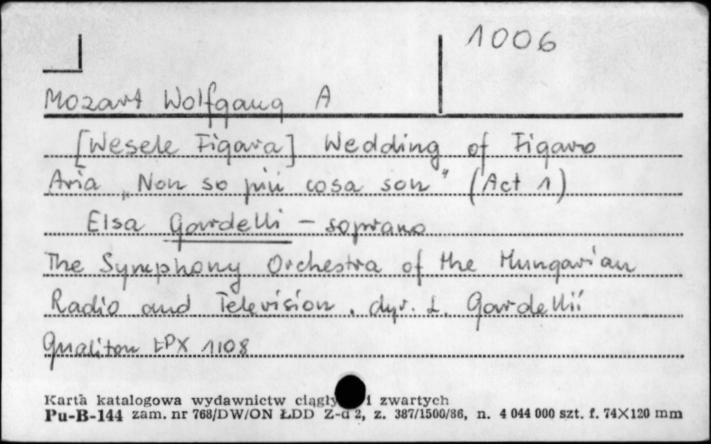 1006
Mozart Wolfgang A
[Wesele Figara] Wedding of Figaro
Aria „Non so più cosa son" (Act 1)
Elsa Gardelli – soprano
The Symphony Orchestra of the Hungarian
Radio and Television, dyr. L. Gardellii
Qualiton LPX 1108
Karta katalogowa wydawnictw ciągły i zwartych
Pu-B-144 zam. nr 768/DW/ON ŁDD Z-d 2, z. 387/1500/86, n. 4 044 000 szt. f. 74×120 mm